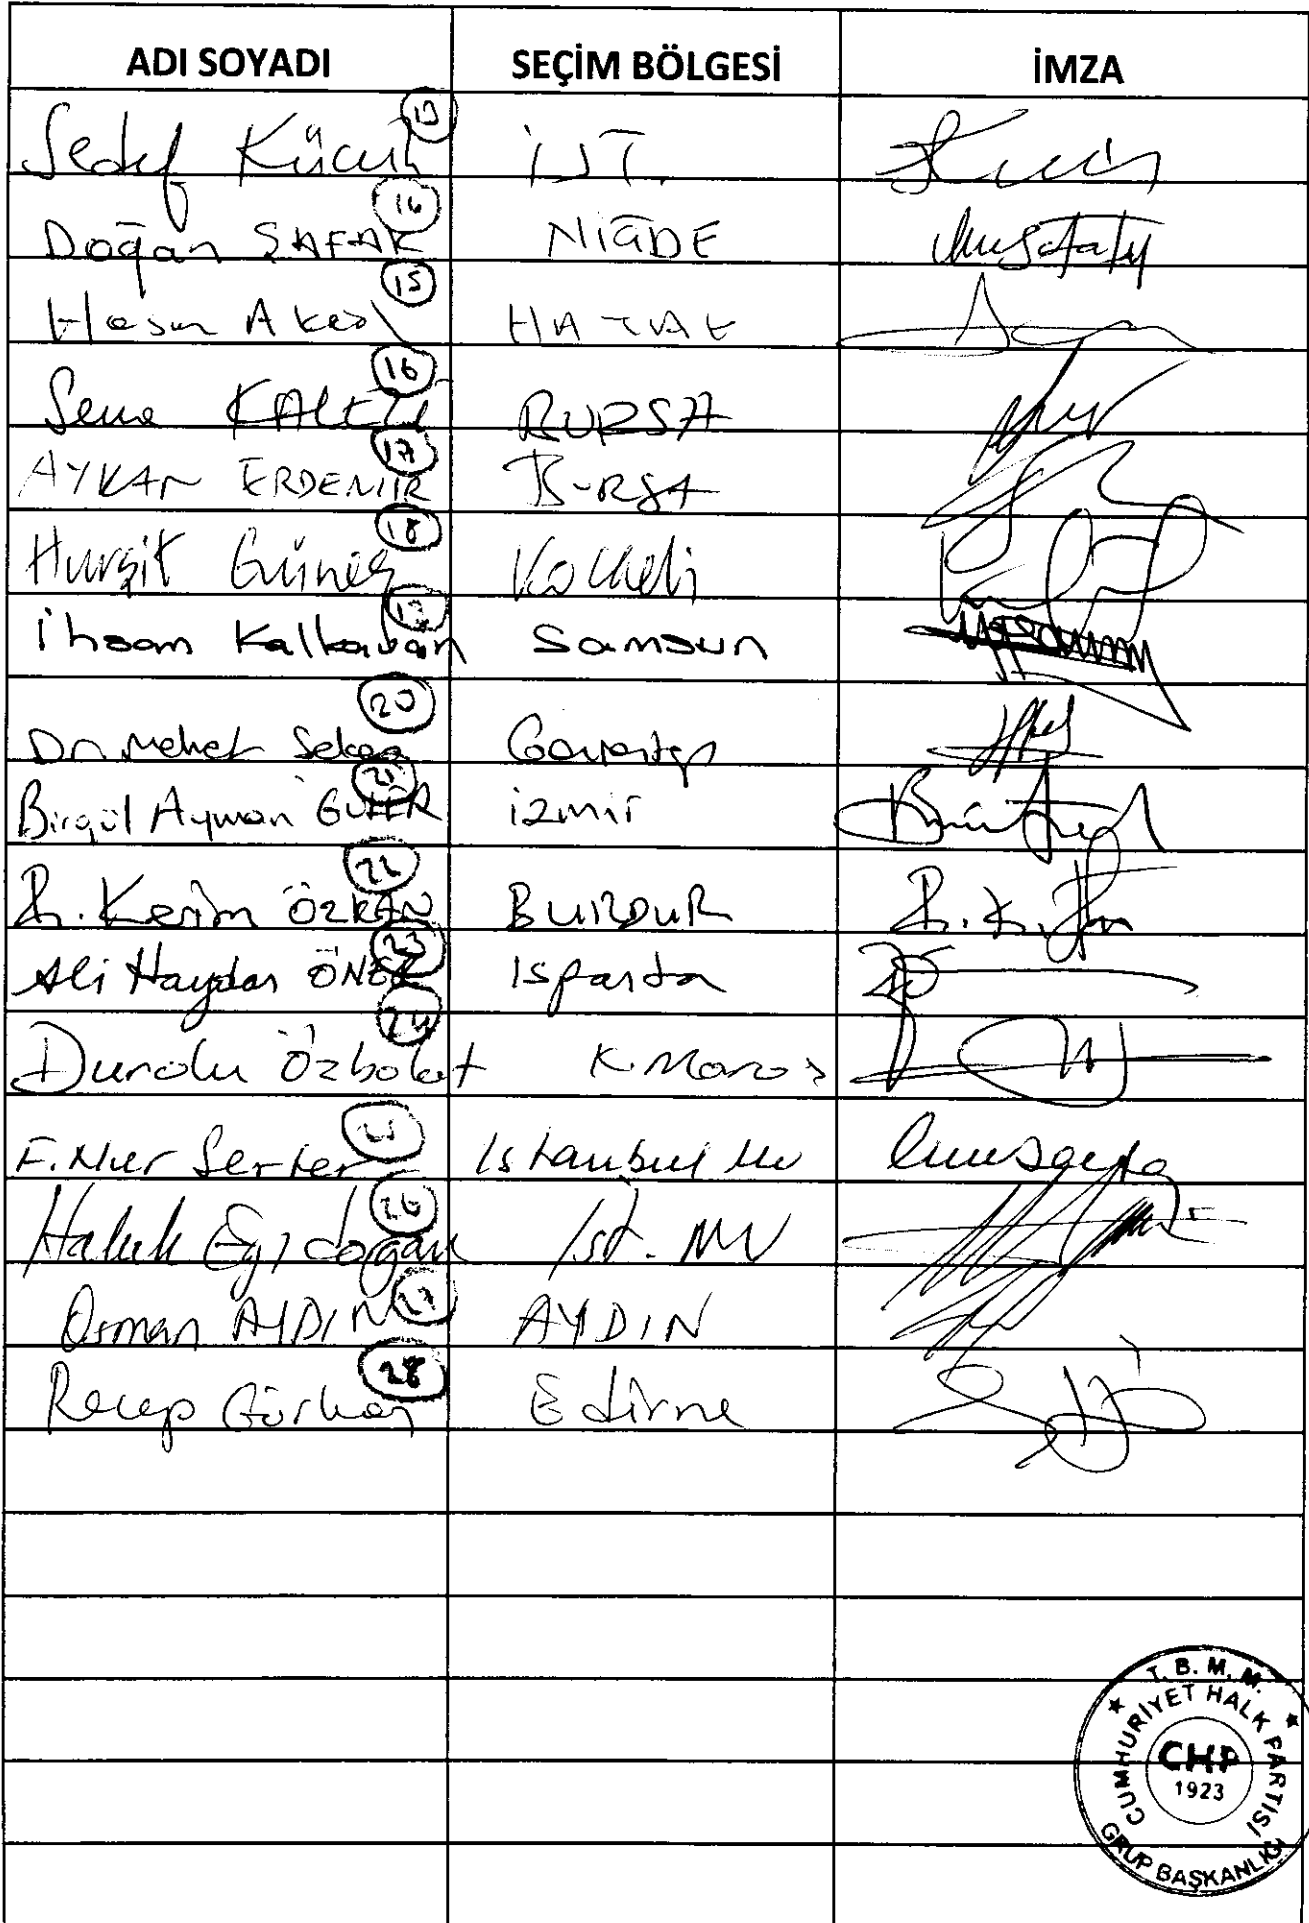 ADI SOYADI SEÇİM BÖLGESİ İMZA
Sedef Küçük 13 İST.
Doğan ŞAFAK NİĞDE
Hasan Akgöl 15 HATAY
Sena KALELİ 16 BURSA
AYKAN ERDEMİR 17 BURSA
Hurşit Güneş 18 Kocaeli
İhsan Kalkavan 19 Samsun
Dr. Mehmet Şeker 20 Gaziantep
Birgül Ayman GÜLER 21 izmir
R. Kerim ÖZKAN 22 BURDUR R. K.
Ali Haydar ÖNER 23 Isparta
Durdu Özbolat 24 K. Maraş
F. Nur Serter 25 Istanbul Mv
Haluk Eyidoğan 26 İst. MV
Osman AYDIN 27 AYDIN
Recep Gürkan 28 Edirne
T. B. M. M.
CUMHURİYET HALK PARTİSİ
CHP
1923
GRUP BAŞKANLIĞI